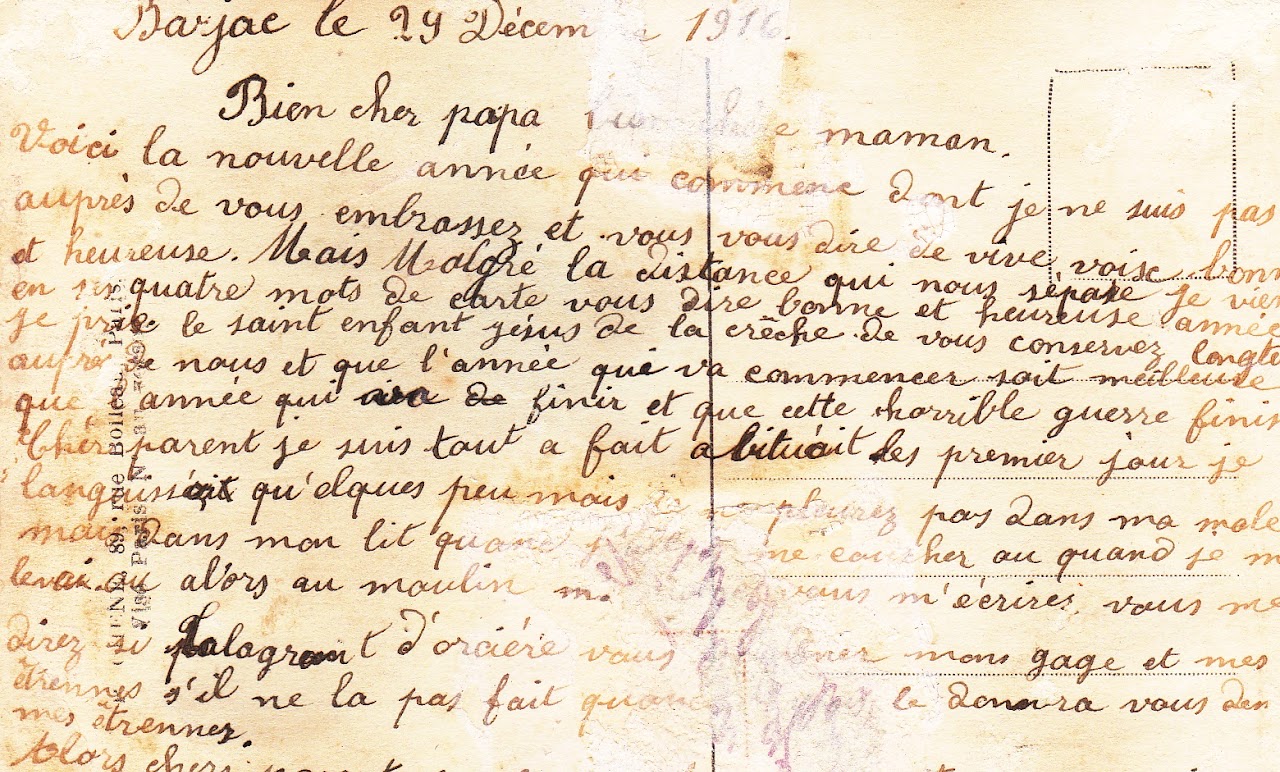 Barjac le 29 Décem 1916.
Bien cher papa maman.
Voici la nouvelle année qui commence dont je ne suis pas
auprès de vous embrassez et vous vous dire de vive voisc bonn
et heureuse. Mais Malgré la distance qui nous sépare je vien
en quatre mots de carte vous dire bonne et heureuse année
je prie le saint enfant jésus de la crêche de vous conservez longte
de nous et que l'année qui va commencer soit meilleure
que année qui de finir et que cette horrible guerre finis
Cher parent je suis tout a fait abituait les premier jour je
languissait qu'elques peu mais pleurez pas dans ma male
mais dans mon lit quand me coucher ou quand je m
levai ou alors au moulin m'écrires vous me
direz si Palagrant d'orcière vous mons gage et mes
étrennes s'il ne la pas fait quand le donnra vous den
mes étrennez.
Alors chers
HENE, 89, rue Boileau, Paris
Visé Paris N